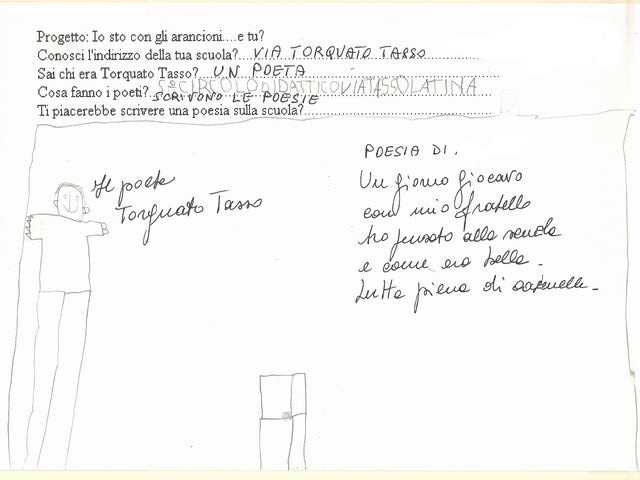 Progetto: Io sto con gli arancioni....e tu?
Conosci l'indirizzo della tua scuola? VIA TORQUATO TASSO
Sai chi era Torquato Tasso? UN POETA
5º CIRCOLO DIDATTICO VIA TASSO LATINA
Cosa fanno i poeti? SCRIVONO LE POESIE
Ti piacerebbe scrivere una poesia sulla scuola?
Il poeta
Torquato Tasso
POESIA DI.
Un giorno giocavo
con mio fratello
ho pensato alla scuola
e come era bella.
tutta piena di